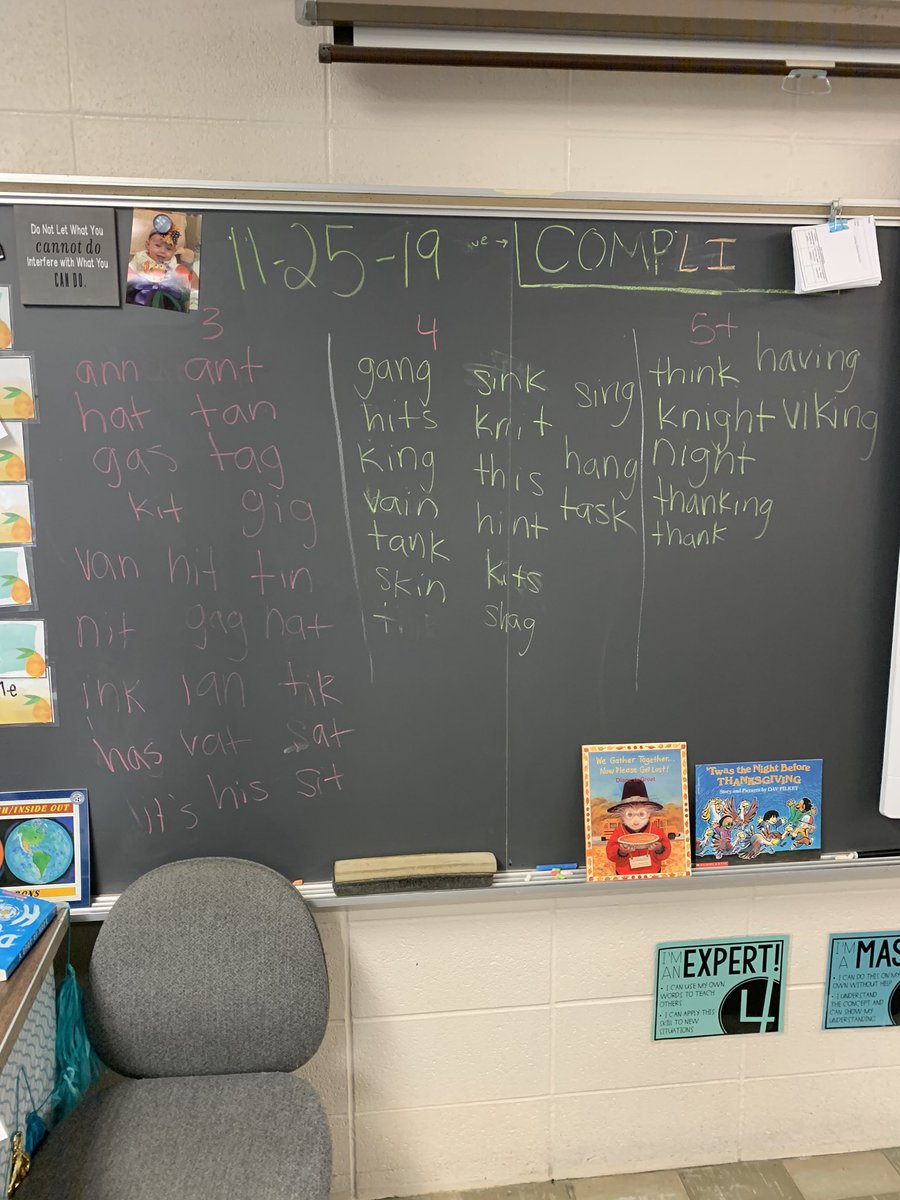 Do Not Let What You
cannot do
Interfere with What You
CAN DO.
11-25-19
we → COMPLI
3
ann ant
hat tan
gas tag
kit gig
van hit tin
nit gag hat
ink Ian tik
has vat sat
it's his sit
4
gang sink sing
hits knit
king this hang
vain hint task
tank
skin kits
shag
5+
think having
knight viking
night
thanking
thank
1-e
We Gather Together...
Now Please Get Lost!
'Twas the Night Before
THANKSGIVING
Story and Pictures by DAV PILKEY
SCHOLASTIC
H/INSIDE OUT
I'M AN EXPERT!
• I CAN USE MY OWN
WORDS TO TEACH
OTHERS
• I CAN APPLY THIS
SKILL TO NEW
SITUATIONS
4
I'M A MAS
• I CAN DO THIS ON MY
OWN WITHOUT HELP
• I UNDERSTAND
THE CONCEPT AND
CAN SHOW MY
UNDERSTANDING